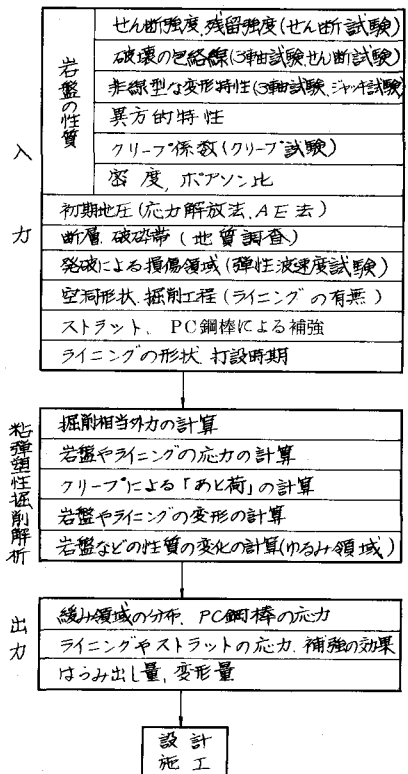 入力
岩盤の性質
せん断強度,残留強度(せん断試験)
破壊の包絡線(3軸試験,せん断試験)
非線型な変形特性(3軸試験,ジャッキ試験)
異方的特性
クリープ係数(クリープ試験)
密度,ポアソン比
初期地圧(応力解放法,AE法)
断層,破砕帯(地質調査)
発破による損傷領域(弾性波速度試験)
空洞形状,掘削工程(ライニングの有無)
ストラット、PC鋼棒による補強
ライニングの形状,打設時期
粘弾塑性掘削解析
掘削相当外力の計算
岩盤やライニングの応力の計算
クリープによる「あと荷」の計算
岩盤やライニングの変形の計算
岩盤などの性質の変化の計算(ゆるみ領域)
出力
緩み領域の分布、PC鋼棒の応力
ライニングやストラットの応力,補強の効果
はらみ出し量,変形量
設計
施工